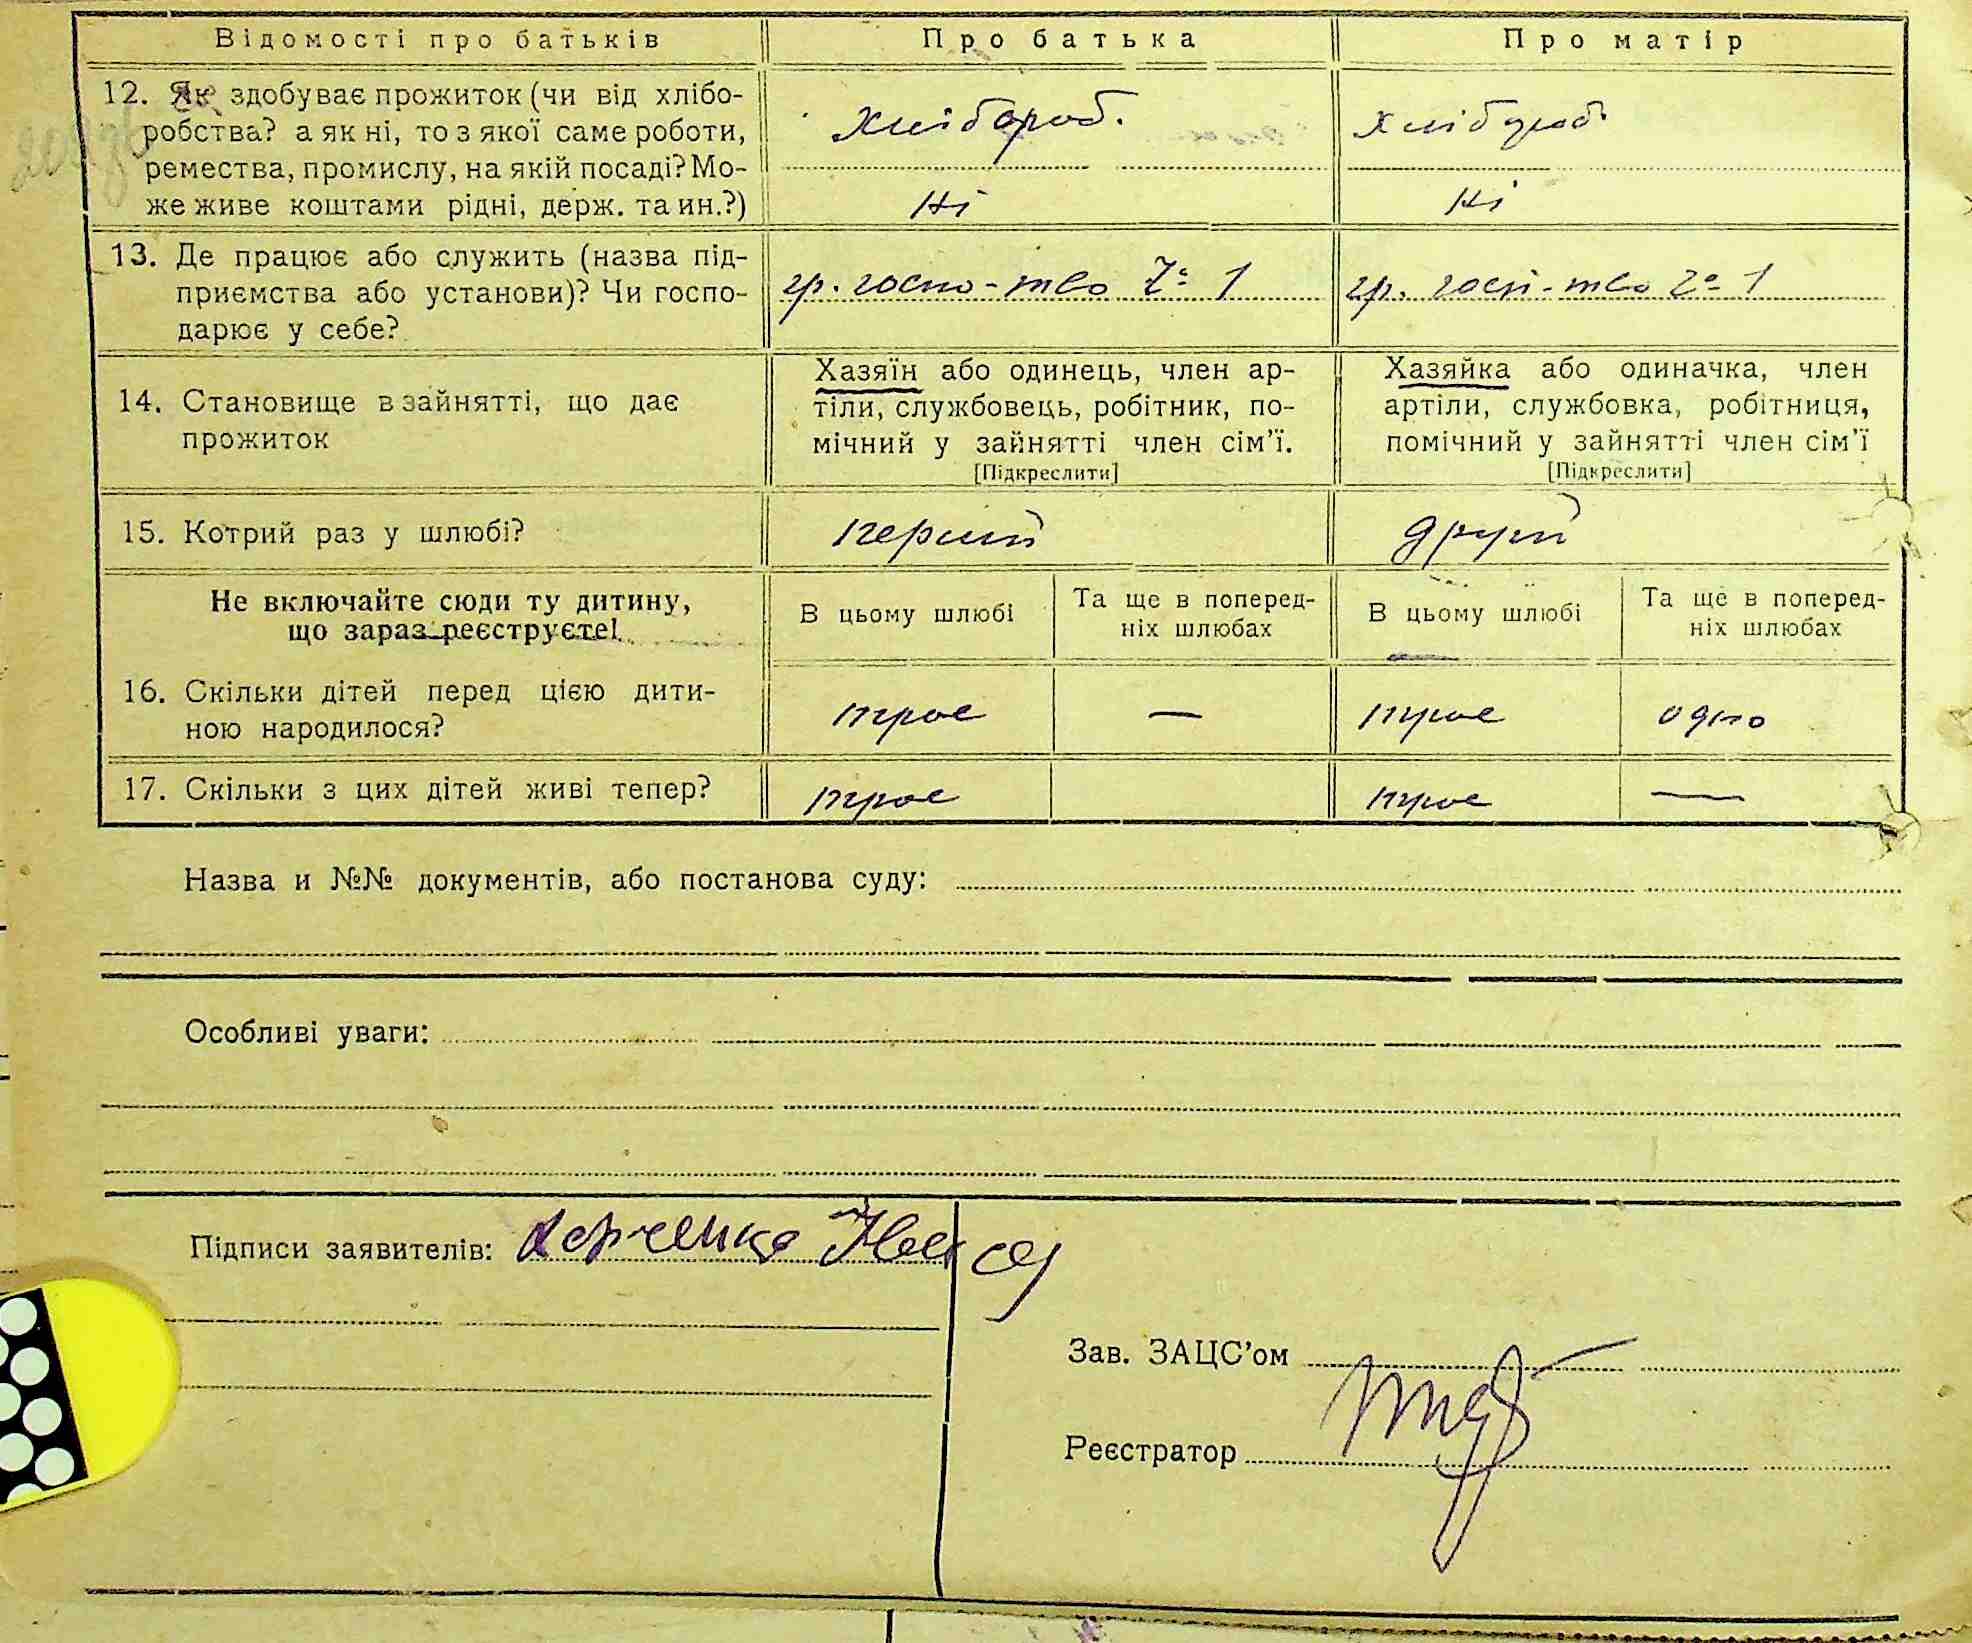 Відомості про батьків Про батька Про матір
12. Як здобуває прожиток (чи від хлібо-
робства? а як ні, то з якої саме роботи,
ремества, промислу, на якій посаді? Мо-
же живе коштами рідні, держ. та ин.?)
Хлібороб.
Ні
Хлібороб.
Ні
13. Де працює або служить (назва під-
приємства або установи)? Чи госпо-
дарює у себе?
гр. госпо-тво 1
гр. госп-тво 1
14. Становище в зайнятті, що дає
прожиток
Хазяїн або одинець, член ар-
тіли, службовець, робітник, по-
мічний у зайнятті член сім'ї.
[Підкреслити]
Хазяйка або одиначка, член
артіли, службовка, робітниця,
помічний у зайнятті член сім'ї
[Підкреслити]
15. Котрий раз у шлюбі? перший другий
Не включайте сюди ту дитину,
що зараз реєструєте!
В цьому шлюбі
Та ще в поперед-
ніх шлюбах
В цьому шлюбі
Та ще в поперед-
ніх шлюбах
16. Скільки дітей перед цією дити-
ною народилося?
троє — троє одно
17. Скільки з цих дітей живі тепер? троє троє —
Назва и №№ документів, або постанова суду:
Особливі уваги:
Підписи заявителів:
Зав. ЗАЦС'ом
Реєстратор